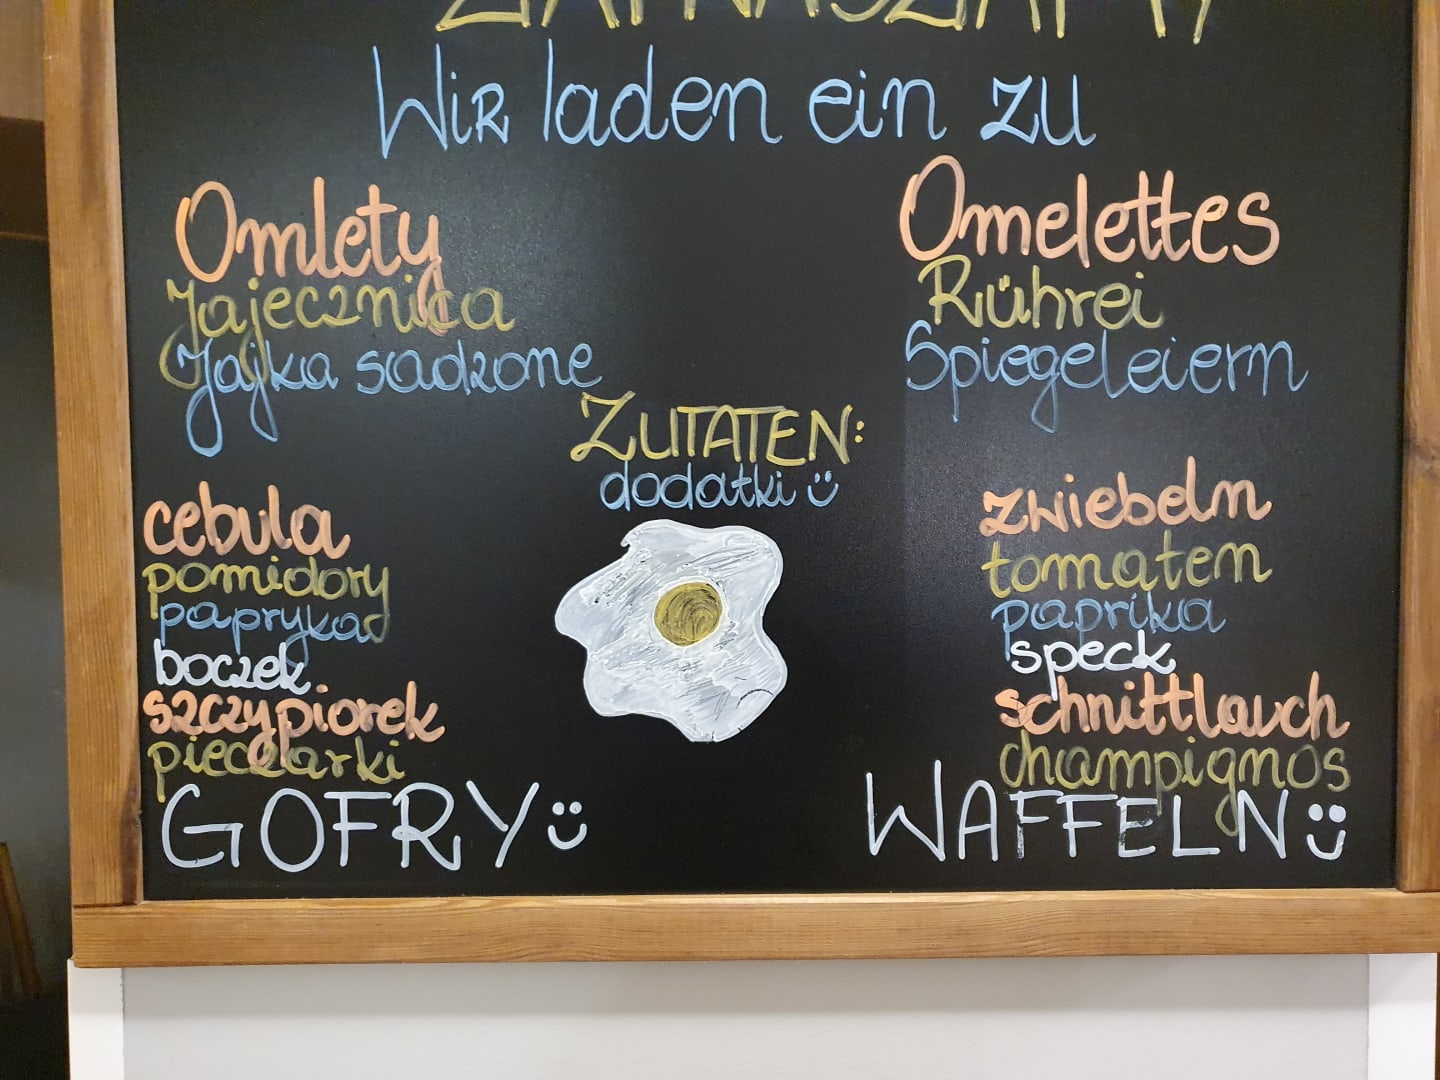 Wir laden ein zu
Omlety
Jajecznica
Jajka sadzone
Omelettes
Rührei
Spiegeleiern
ZUTATEN:
dodatki
cebula
pomidory
papryka
boczek
szczypiorek
pieczarki
GOFRY
zwiebeln
tomaten
paprika
speck
schnittlauch
champignos
WAFFELN